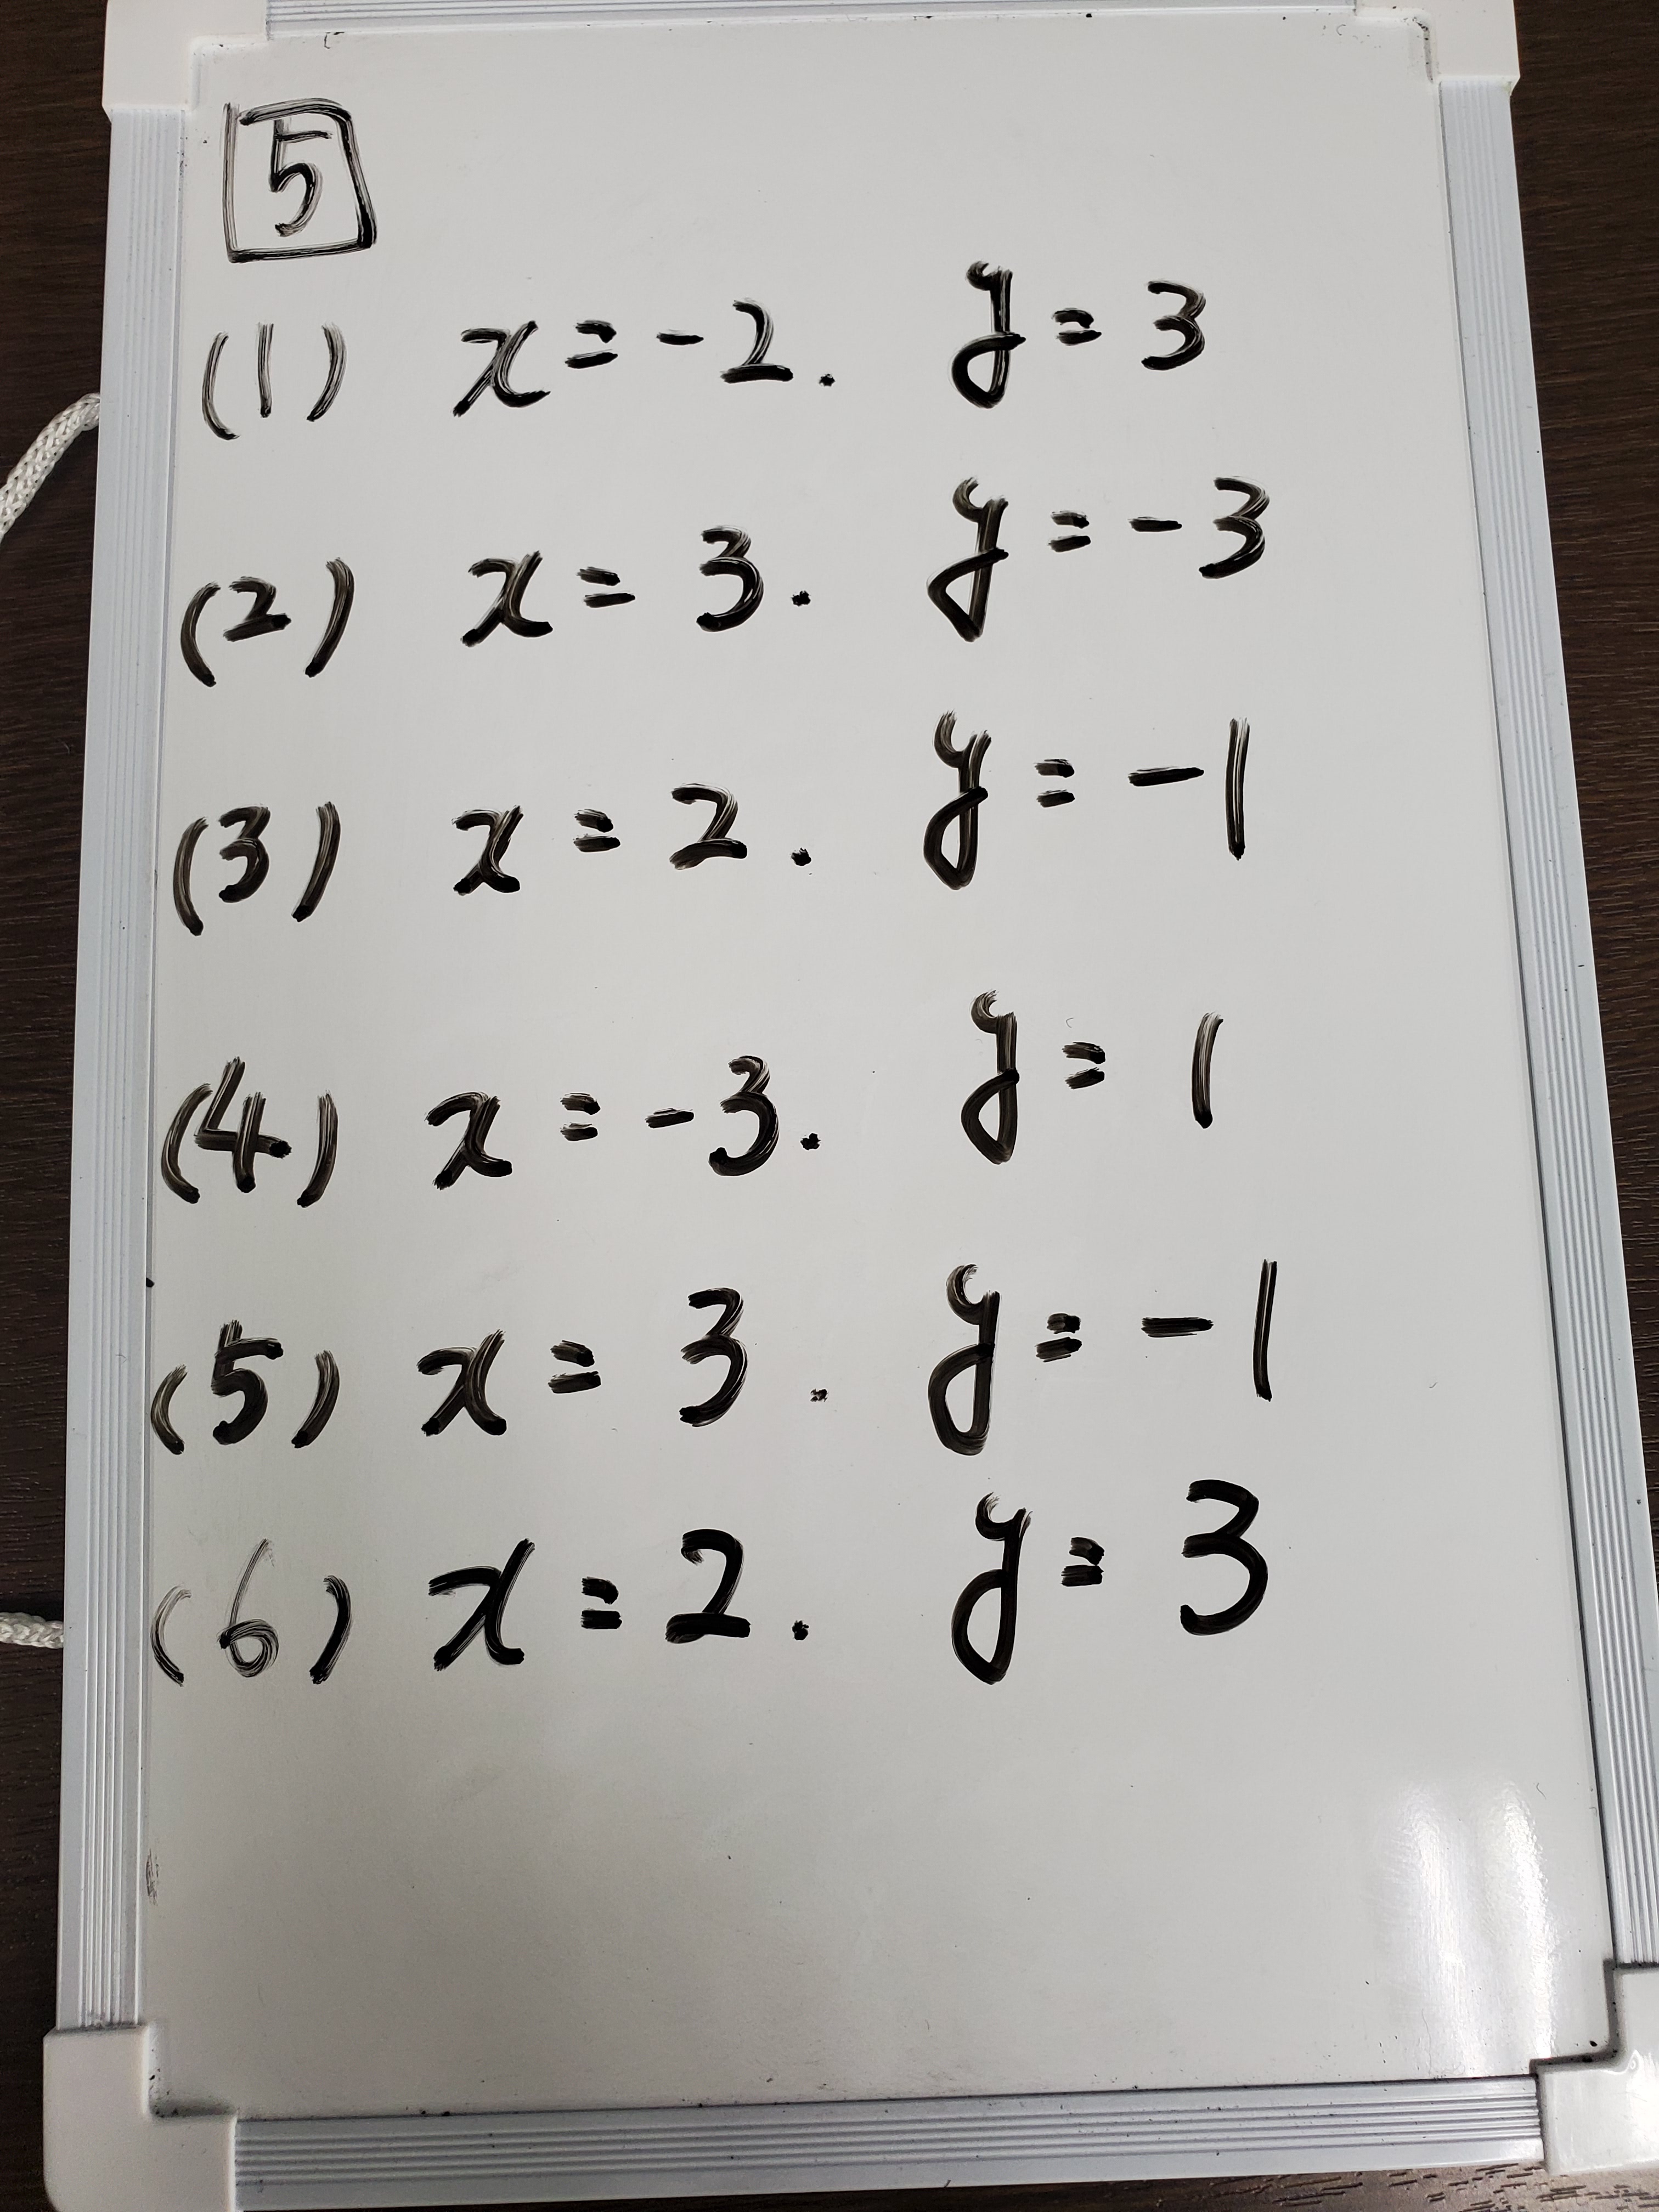 5
(1) x = -2. y = 3
(2) x = 3. y = -3
(3) x = 2. y = -1
(4) x = -3. y = 1
(5) x = 3. y = -1
(6) x = 2. y = 3